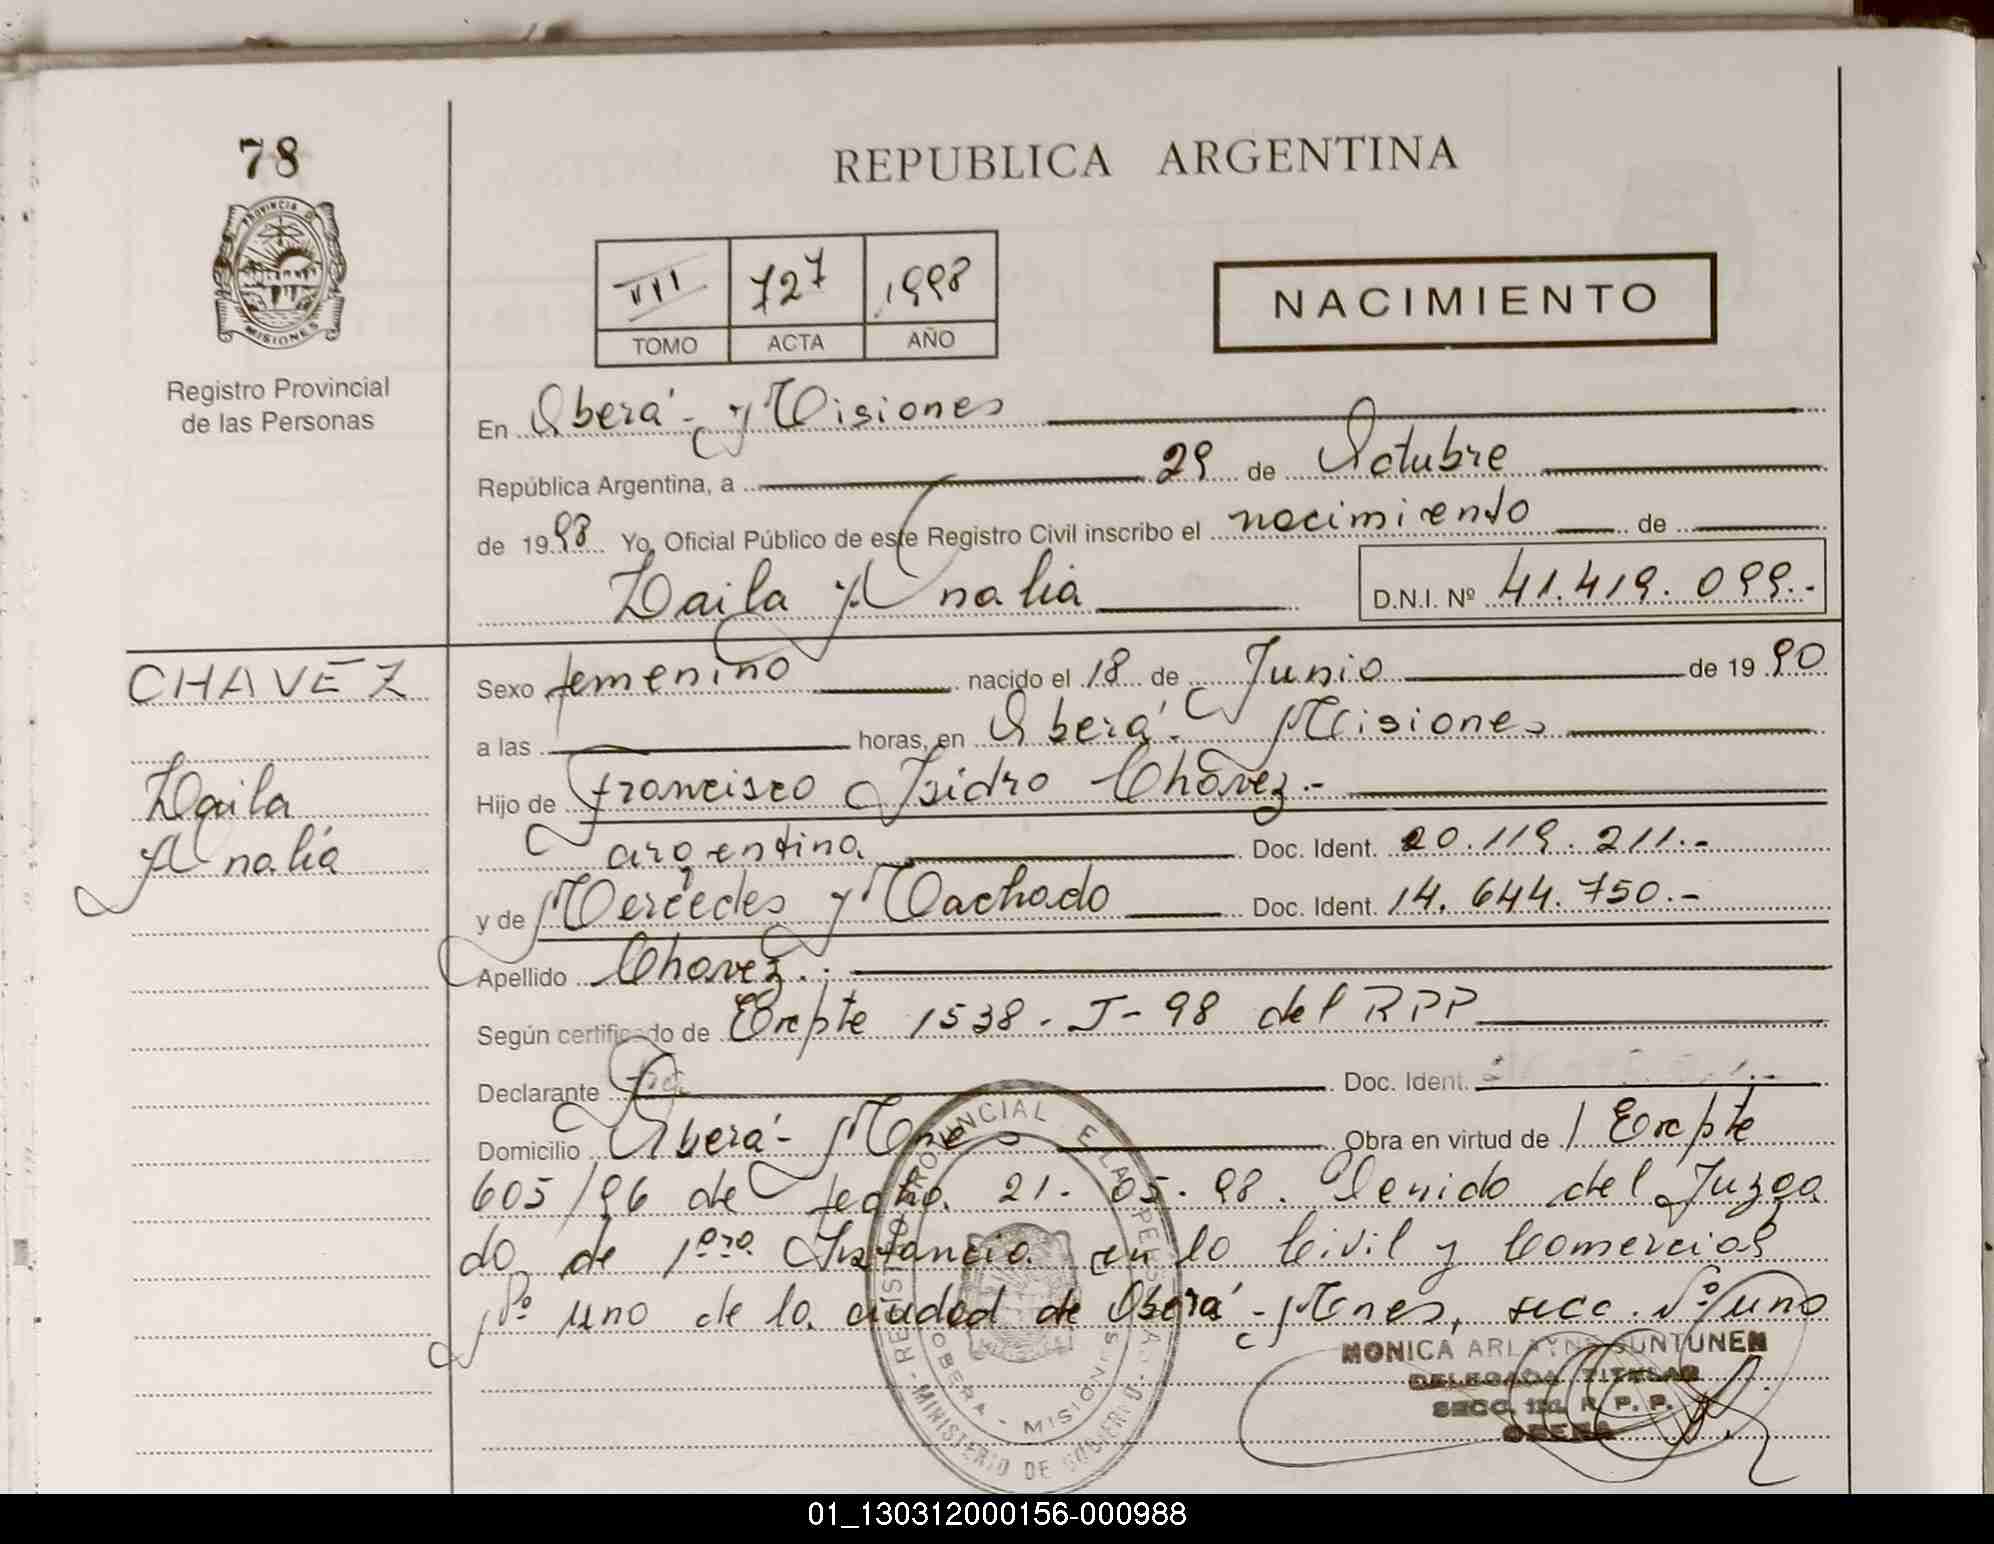 78
PROVINCIA DE
MISIONES
Registro Provincial
de las Personas
REPUBLICA ARGENTINA
VII 727 1998
TOMO ACTA AÑO
NACIMIENTO
En Oberá - Misiones
República Argentina, a 29 de Octubre
de 1998 Yo, Oficial Público de este Registro Civil inscribo el nacimiento de
Daila Analia
D.N.I. Nº 41.419.099.-
CHAVEZ
Daila
Analia
Sexo femenino nacido el 18 de Junio de 1990
a las horas, en Oberá - Misiones
Hijo de Francisco Isidro Chávez.-
argentina Doc. Ident. 20.119.211.-
y de Mercedes Machado Doc. Ident. 14.644.750.-
Apellido Chavez.-
Según certificado de Expte 1538-J-98 del RPP
Declarante Doc. Ident.
Domicilio Oberá - Mnes Obra en virtud de / Expte
605/96 de fecha 21-05-98. Venido del Juzga
do de 1era Instancia en lo Civil y Comercial
Nº uno de la ciudad de Oberá - Mnes, secc. Nº uno
REGISTRO PROVINCIAL DE LAS PERSONAS - MINISTERIO DE GOBIERNO -
OBERA - MISIONES
MONICA ARLAYNE SUNTUNEN
DELEGADA TITULAR
SECC. R. P. P.
OBERA
01_130312000156-000988